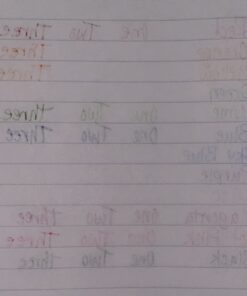 Red One Two Three
Orange Three
Three
Green
One Two Three
Blue One Two Three
Sky Blue
Purple
One Two Three
Pink One Two Three
Black One Two Three